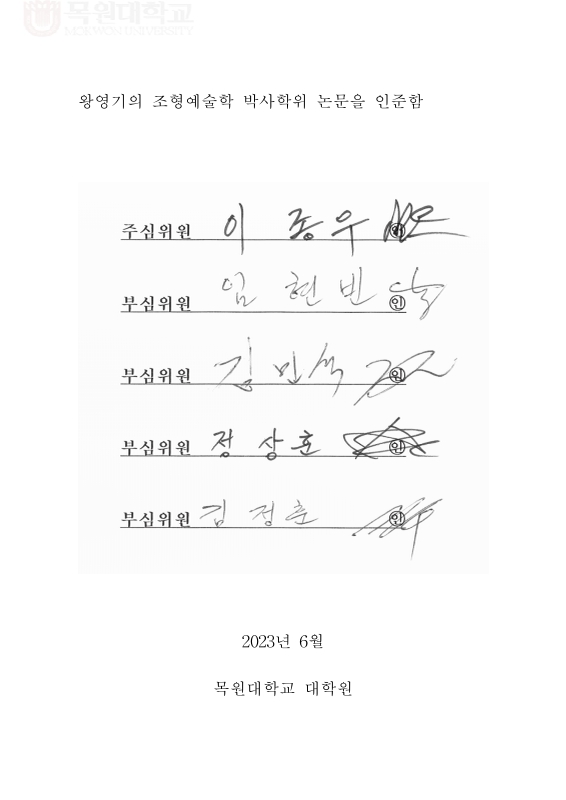 목원대학교
MOKWON UNIVERSITY
왕영기의 조형예술학 박사학위 논문을 인준함
주심위원 이 종우 인
부심위원 임 현빈 인
부심위원 김민석 인
부심위원 정상훈 인
부심위원 김정훈 인
2023년 6월
목원대학교 대학원